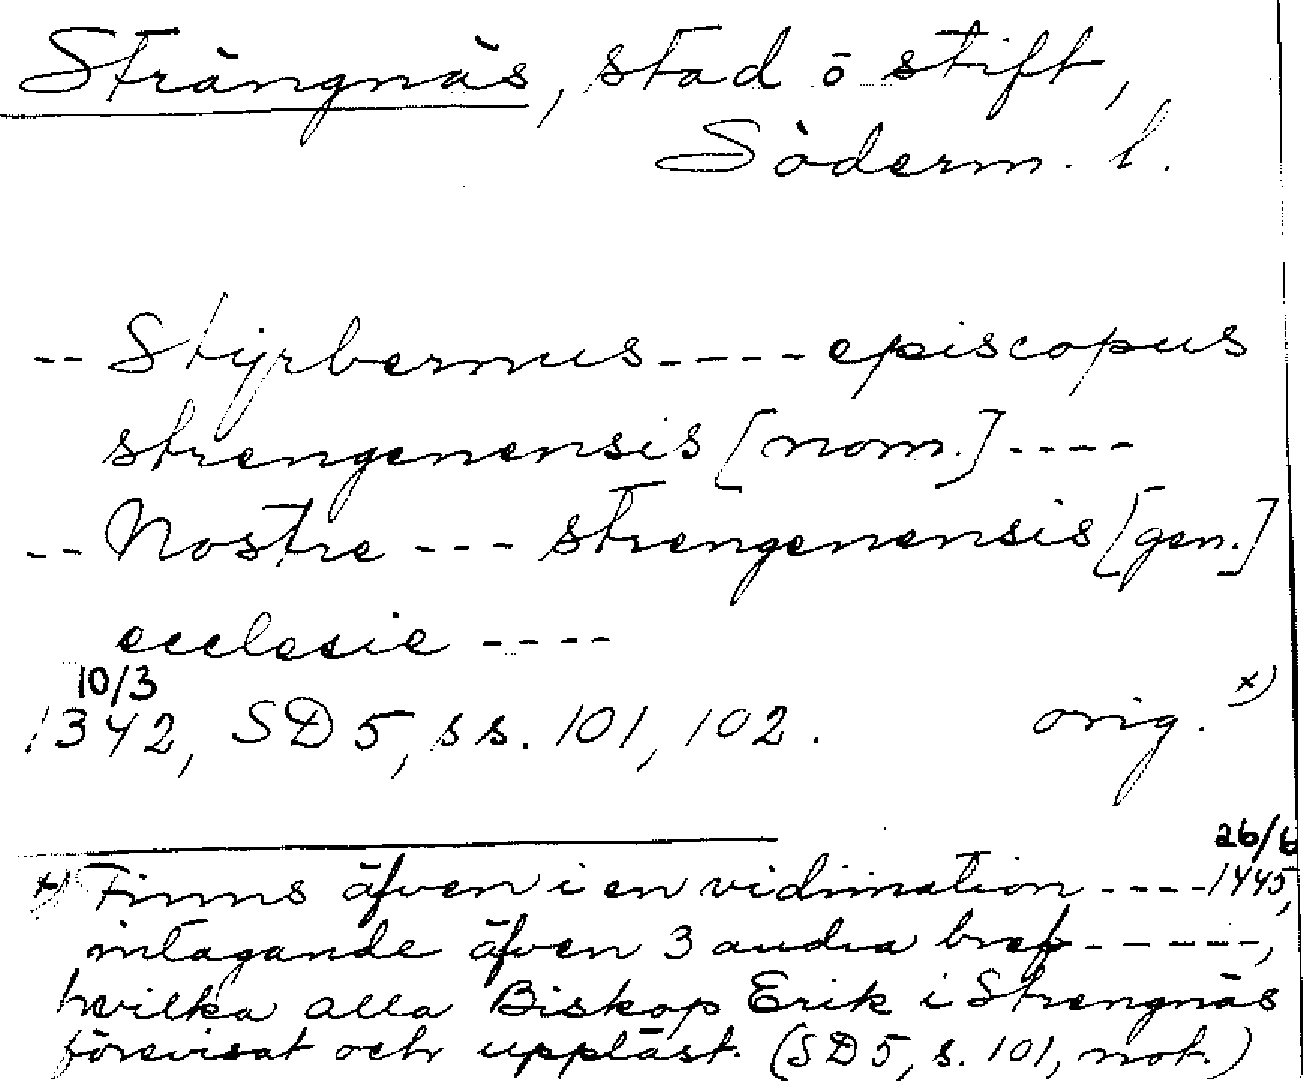 Strängnäs, stad o stift,
Söderm. l.
-- Styrbernus ---- episcopus
strengenensis [nom.] ----
-- Nostre --- strengenensis [gen.]
ecclesie ----
10/3
1342, SD 5, ss. 101, 102. orig. x)
26/6
x) Finns äfven i en vidimation ---- 1445,
intagande äfven 3 andra bref -----,
hvilka alla Biskop Erik i Strengnäs
förevisat och uppläst. (SD 5, s. 101, not.)